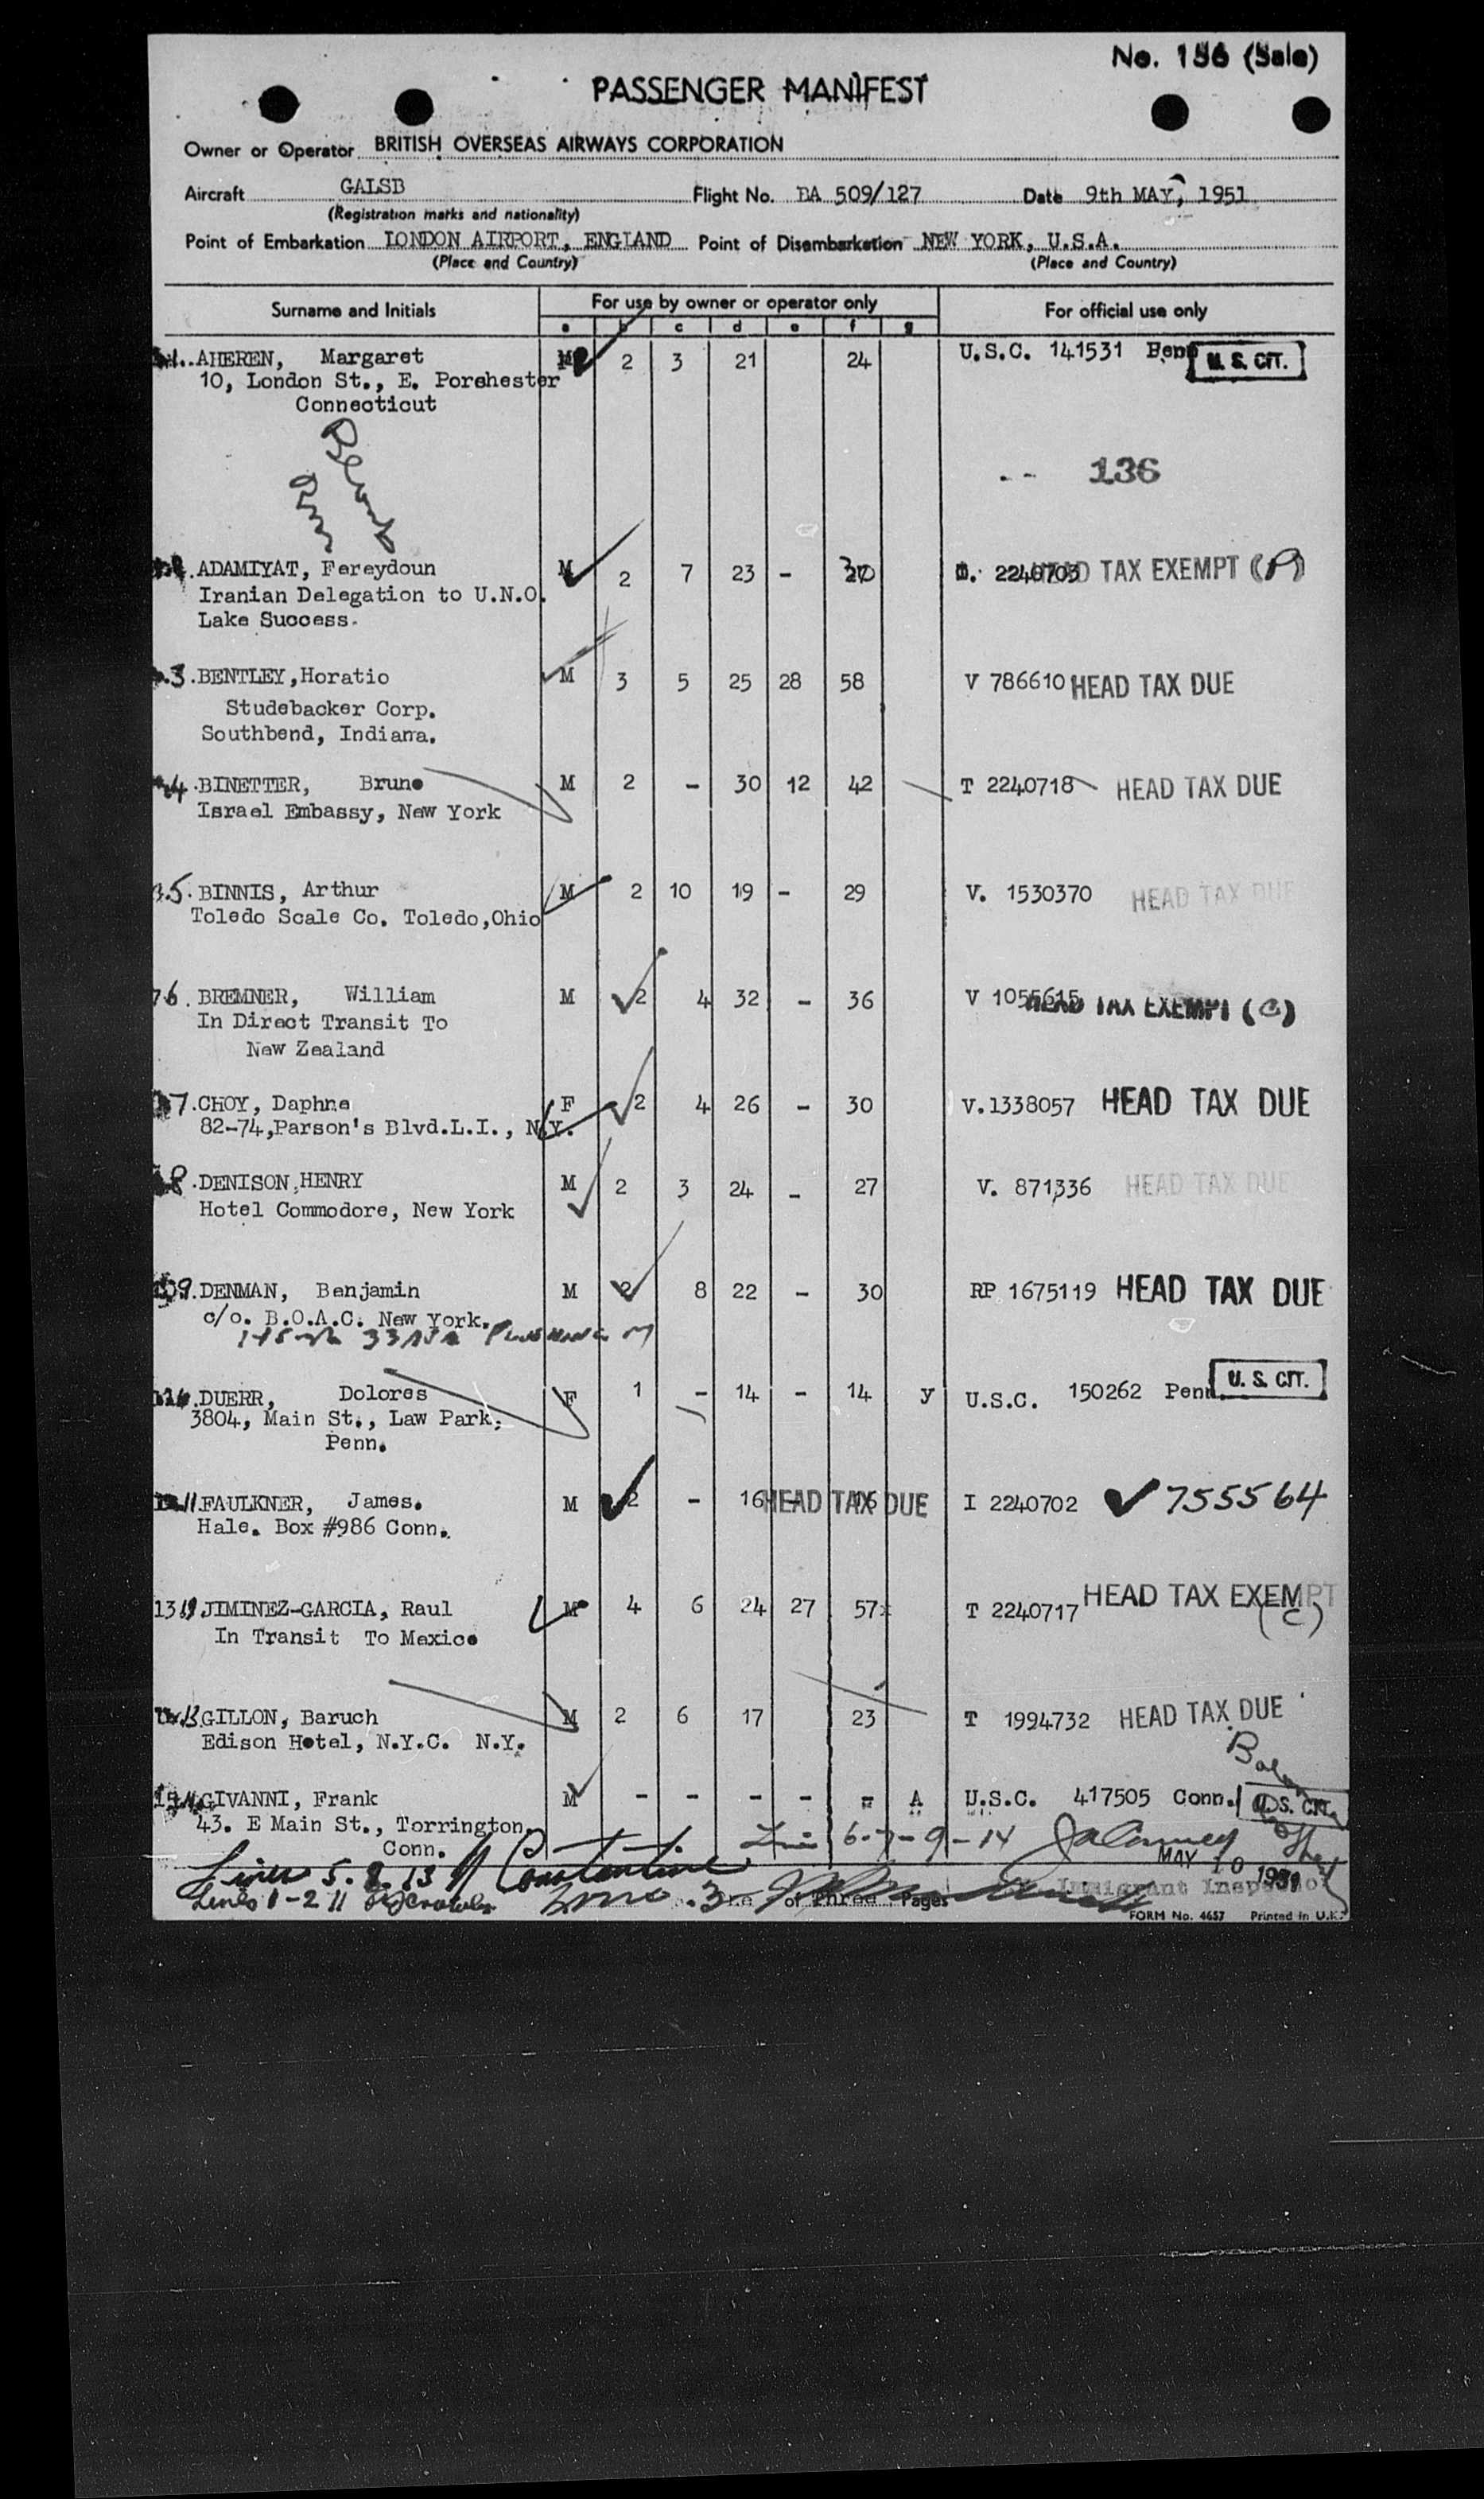 No. 156 (Sale)
PASSENGER MANIFEST
Owner or Operator BRITISH OVERSEAS AIRWAYS CORPORATION
Aircraft GALSB Flight No. BA 509/127 Date 9th MAY, 1951
(Registration marks and nationality)
Point of Embarkation LONDON AIRPORT, ENGLAND Point of Disembarkation NEW YORK, U.S.A.
(Place and Country) (Place and Country)
Surname and Initials For use by owner or operator only For official use only
a b c d e f g
1. AHEREN, Margaret 2 3 21 24 U.S.C. 141531 U. S. CIT.
10, London St., E. Porchester
Connecticut
136
ADAMIYAT, Fereydoun M 2 7 23 - 30 2240703 HEAD TAX EXEMPT (P)
Iranian Delegation to U.N.O.
Lake Success.
3. BENTLEY, Horatio M 3 5 25 28 58 V 786610 HEAD TAX DUE
Studebacker Corp.
Southbend, Indiana.
4. BINETTER, Bruno M 2 - 30 12 42 T 2240718 HEAD TAX DUE
Israel Embassy, New York
5. BINNIS, Arthur M 2 10 19 - 29 V. 1530370 HEAD TAX DUE
Toledo Scale Co. Toledo, Ohio
6. BREMNER, William M 2 4 32 - 36 V 1055615 HEAD TAX EXEMPT (C)
In Direct Transit To
New Zealand
7. CHOY, Daphne F 2 4 26 - 30 V. 1338057 HEAD TAX DUE
82-74, Parson's Blvd. L.I., N.Y.
8. DENISON, HENRY M 2 3 24 - 27 V. 871336 HEAD TAX DUE
Hotel Commodore, New York
9. DENMAN, Benjamin M 2 8 22 - 30 RP 1675119 HEAD TAX DUE
c/o. B.O.A.C. New York.
DUERR, Dolores F 1 - 14 - 14 y U.S.C. 150262 Penn. U. S. CIT.
3804, Main St., Law Park,
Penn.
11. FAULKNER, James. M 2 - 16 - HEAD TAX DUE I 2240702 ✓ 755564
Hale. Box #986 Conn.
JIMINEZ-GARCIA, Raul M 4 6 24 27 57 T 2240717 HEAD TAX EXEMPT (C)
In Transit To Mexico
13 GILLON, Baruch M 2 6 17 23 T 1994732 HEAD TAX DUE
Edison Hotel, N.Y.C. N.Y.
GIVANNI, Frank M - - - - - A U.S.C. 417505 Conn. U. S. CIT.
43. E Main St., Torrington,
Conn.
6-7-9-14
Lines 5. 8. 13 Constantine
MAY 10 1951
Lines 1-2 11
of Three Pages Immigrant Inspector
FORM No. 4657 Printed in U.K.